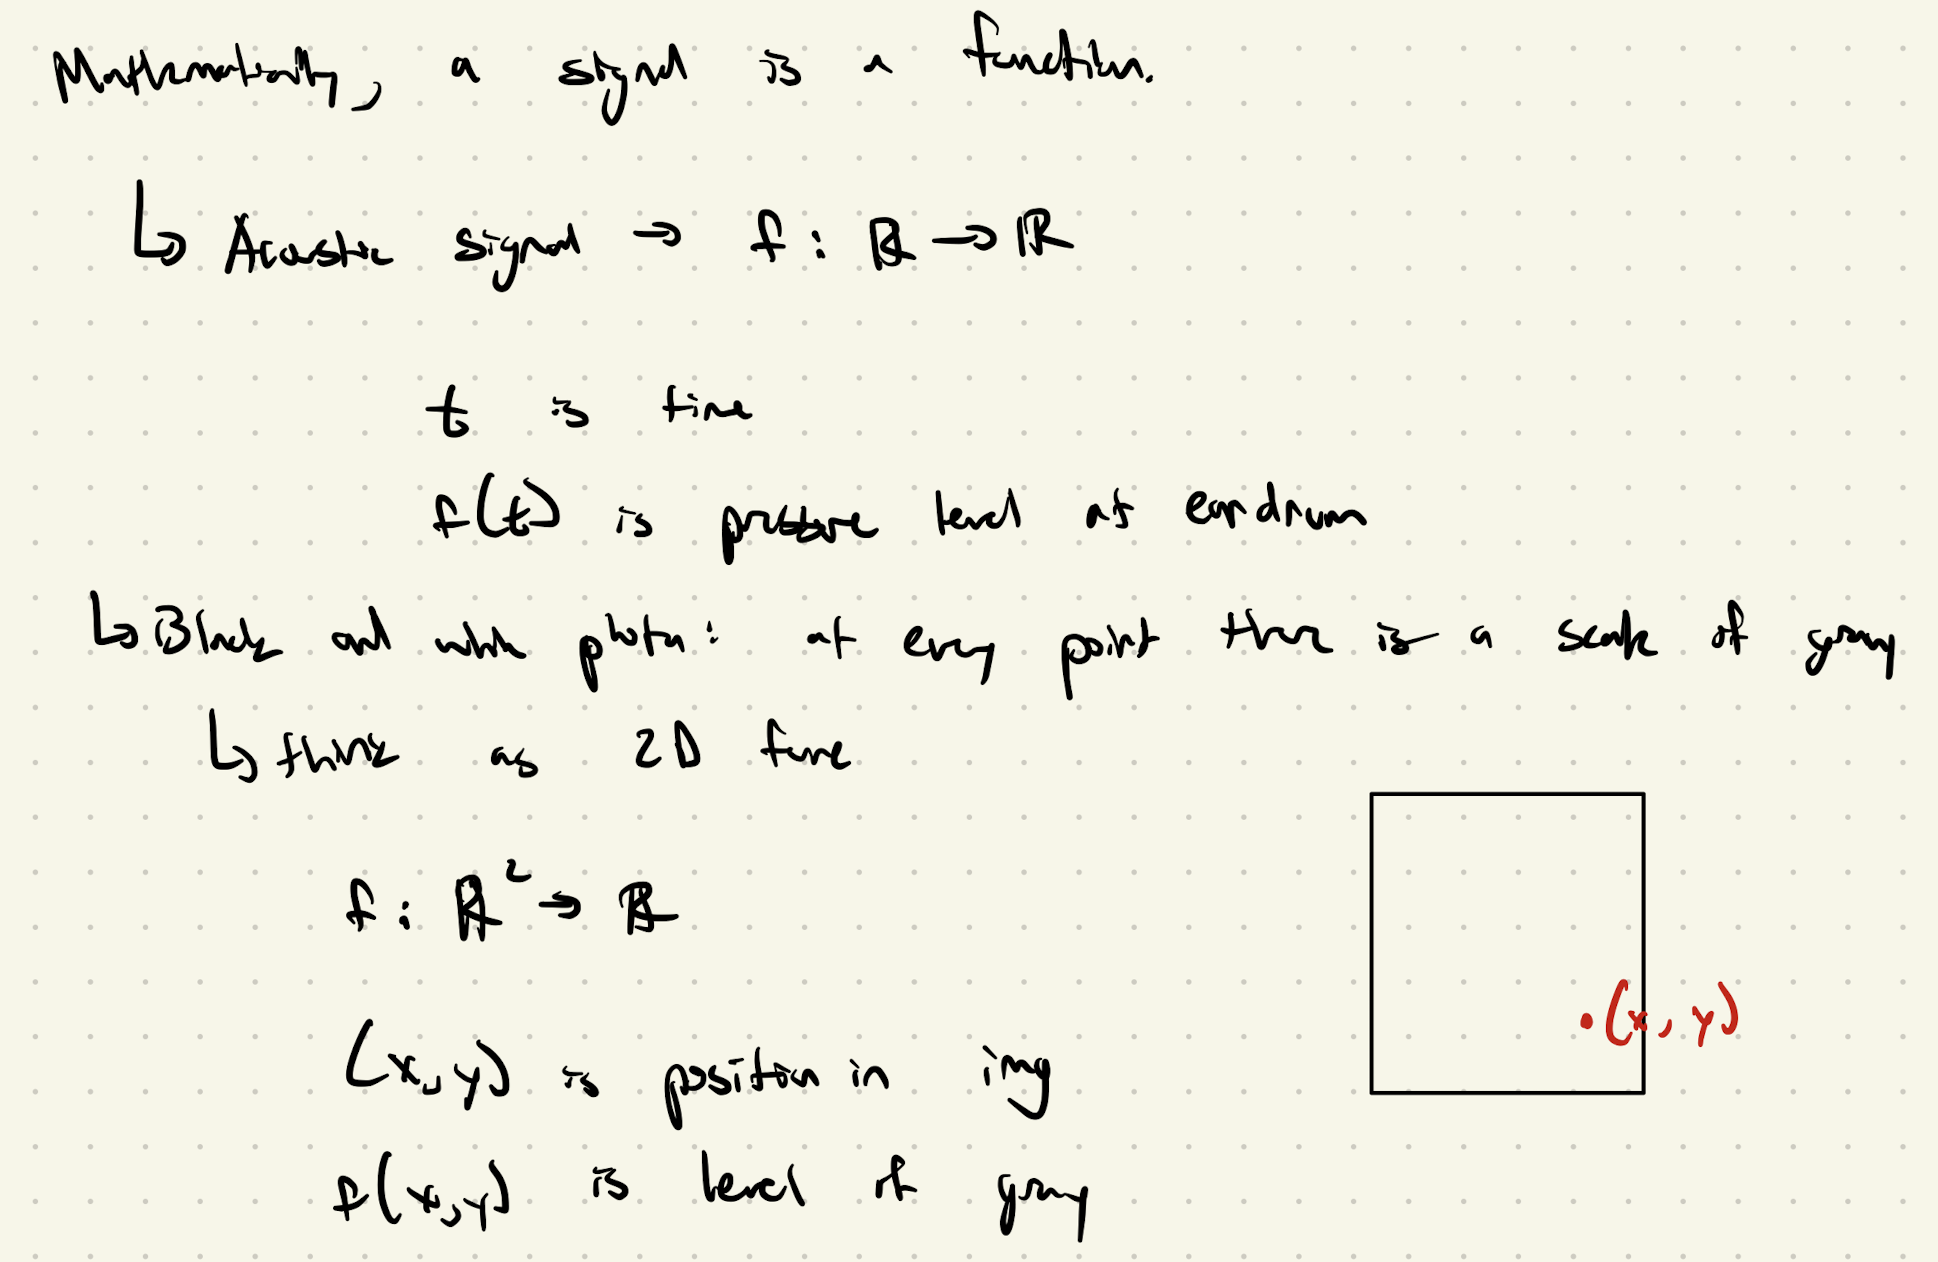 Mathematically, a signal is a function.
↳ Acoustic signal → f : ℝ → ℝ
t is time
f(t) is pressure level at eardrum
↳ Black and white photo: at every point there is a scale of gray
↳ think as 2D func
f : ℝ² → ℝ
(x, y)
(x, y) is position in img
f(x, y) is level of gray